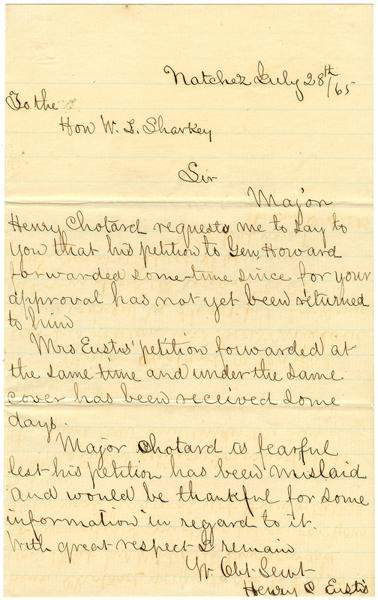 Natchez July 28th/65
To the
Hon W. L. Sharkey
Sir
Major
Henry Chotard requests me to say to
you that his petition to Gen, Howard
forwarded some-time since for your
approval has not yet been returned
to him
Mrs Eustis' petition forwarded at
the same time and under the same
cover has been received some
days.
Major Chotard is fearful
lest his petition has been mislaid
and would be thankful for some
information in regard to it.
With great respect I remain
Yr Obt Servt
Henry C Eustis